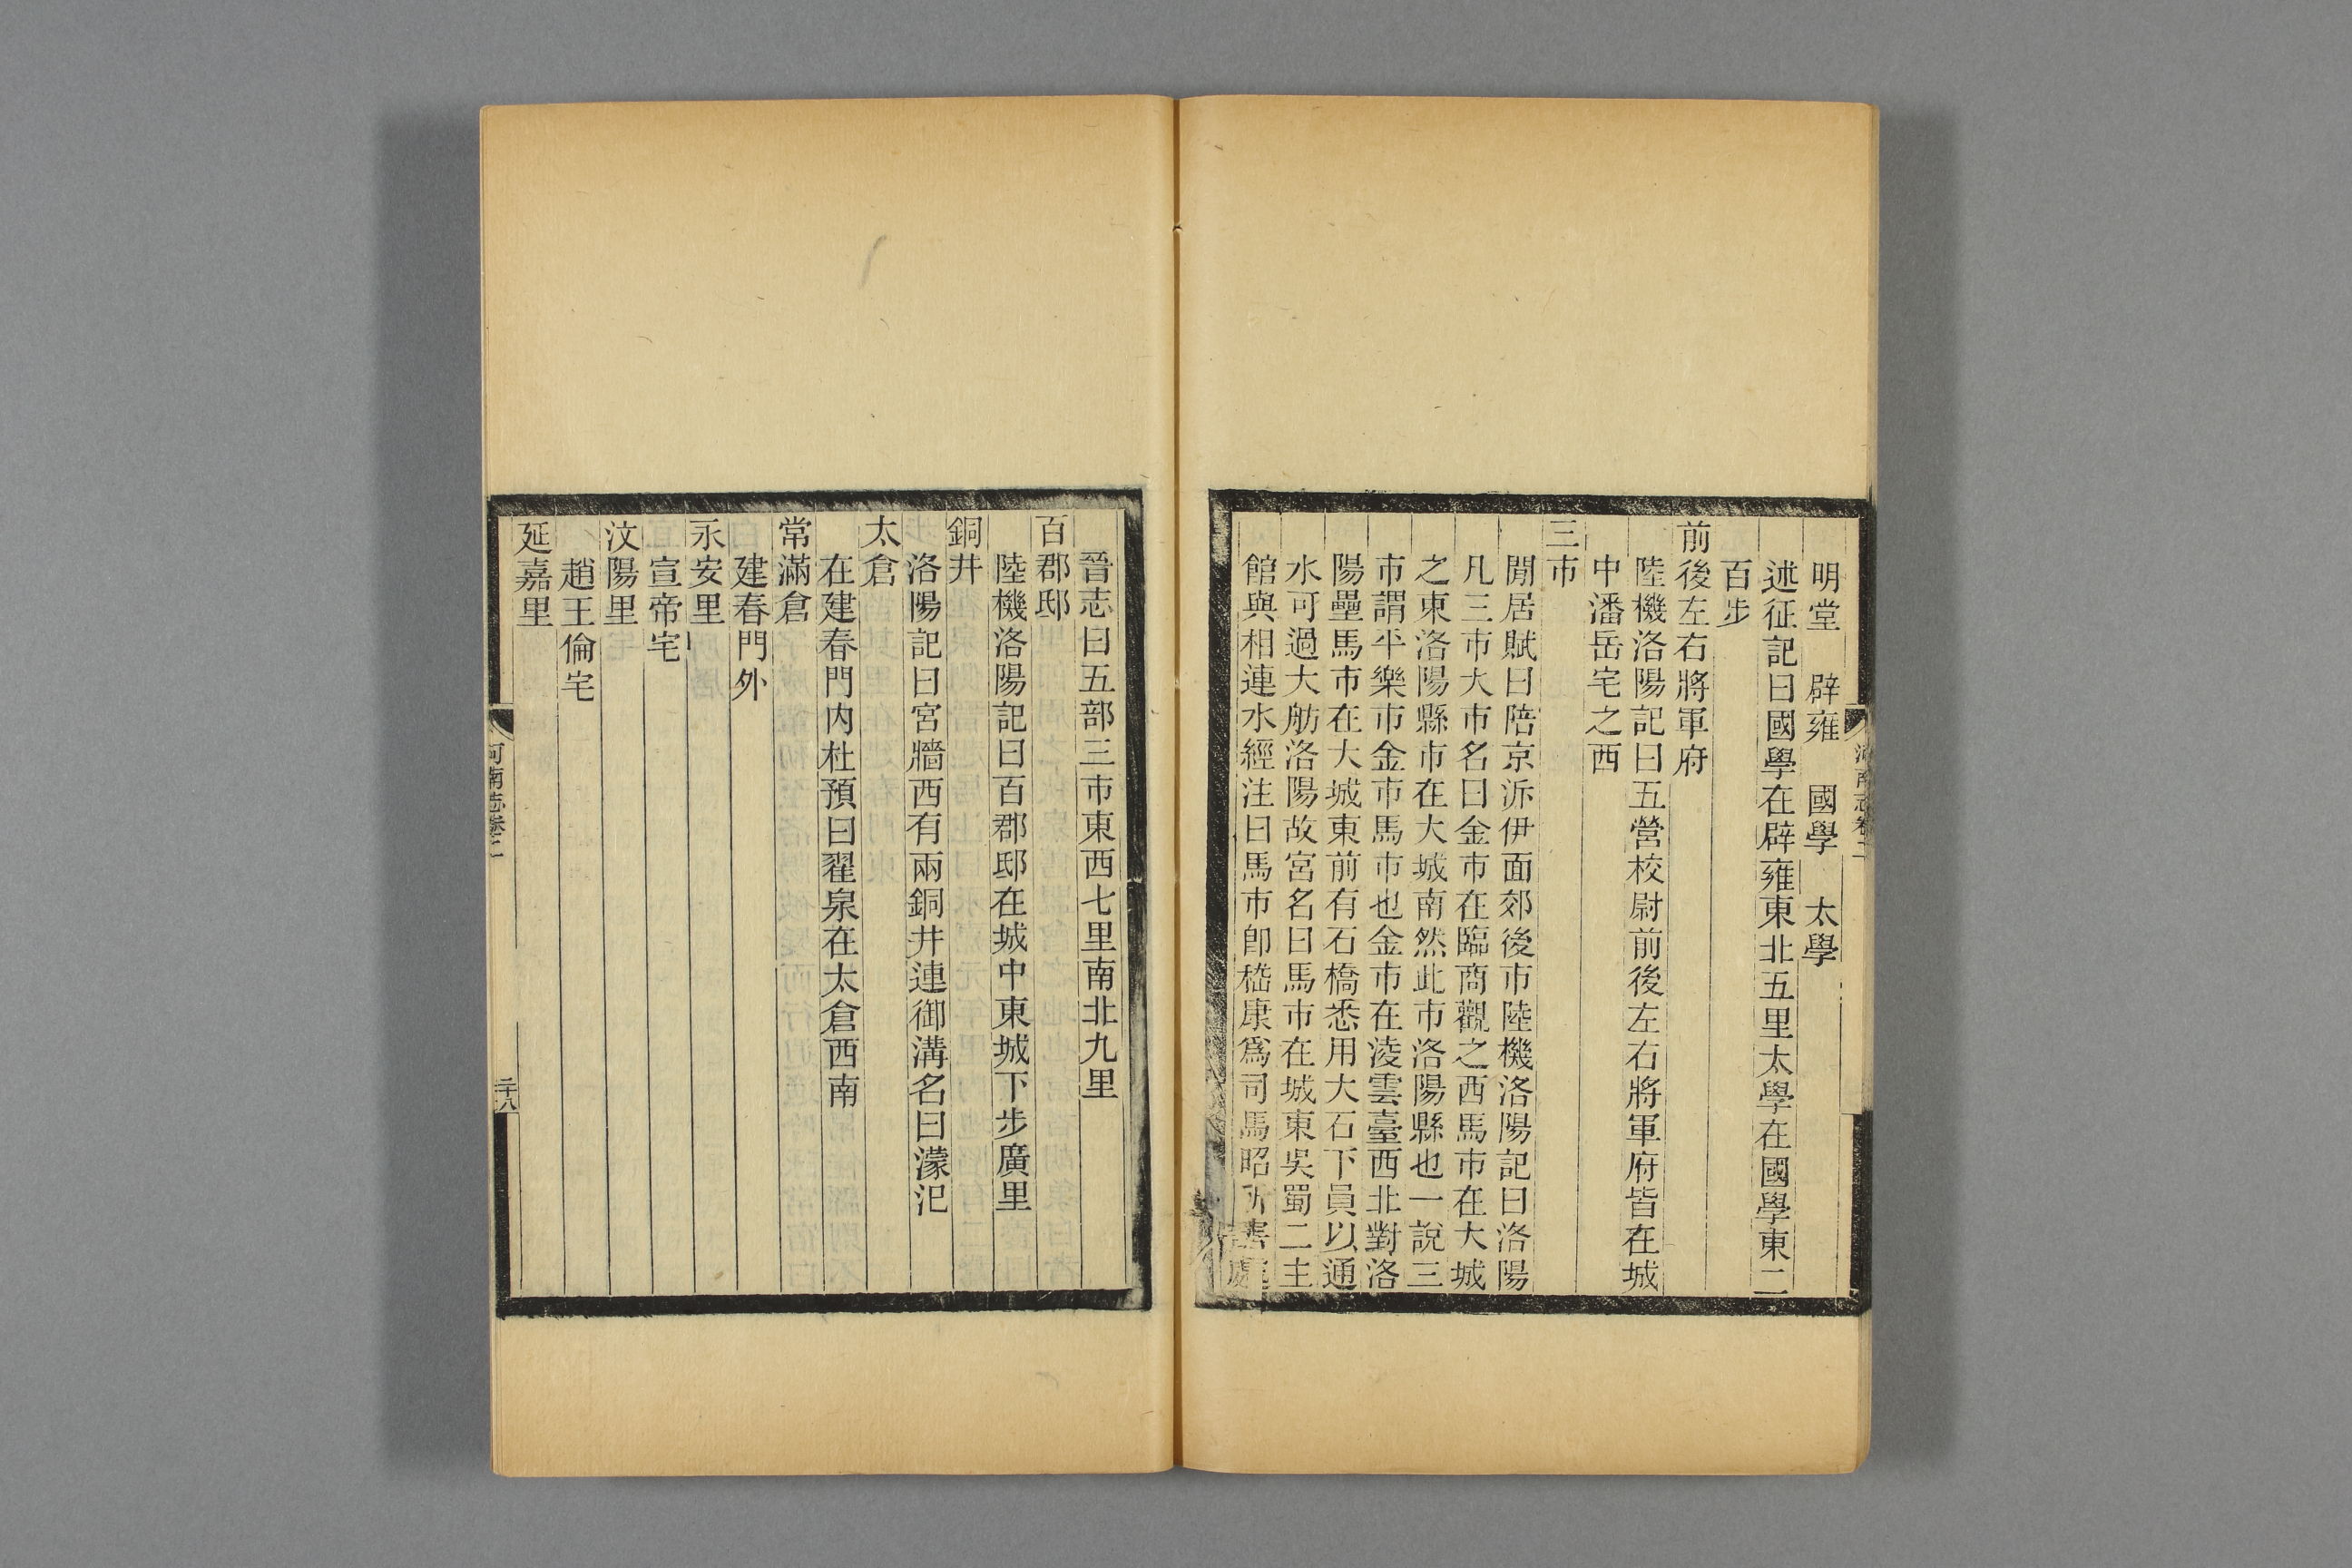 明堂　辟雍　國學　太學
述征記曰國學在辟雍東北五里太學在國學東二
百步
前後左右將軍府
陸機洛陽記曰五營校尉前後左右將軍府皆在城
中潘岳宅之西
三市
閒居賦曰陪京泝伊面郊後市陸機洛陽記曰洛陽
凡三市大市名曰金市在臨商觀之西馬市在大城
之東洛陽縣市在大城南然此市洛陽縣也一說三
市謂平樂市金市馬市也金市在淩雲臺西北對洛
陽壘馬市在大城東前有石橋悉用大石下員以通
水可過大舫洛陽故宮名曰馬市在城東吳蜀二主
館與相連水經注曰馬市卽嵇康爲司馬昭所害處
河南志卷二
晉志曰五部三市東西七里南北九里
百郡邸
陸機洛陽記曰百郡邸在城中東城下步廣里
銅井
洛陽記曰宮牆西有兩銅井連御溝名曰濛汜
太倉
在建春門内杜預曰翟泉在太倉西南
常滿倉
建春門外
永安里
宣帝宅
汶陽里
趙王倫宅
延嘉里
河南志卷二
二十八